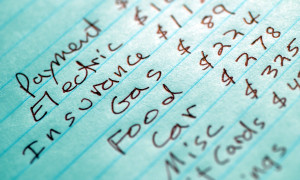 Payment $
Electric $
Insurance $ 89
Gas $ 224
Food $ 278
Car $ 325
Misc $
Cards